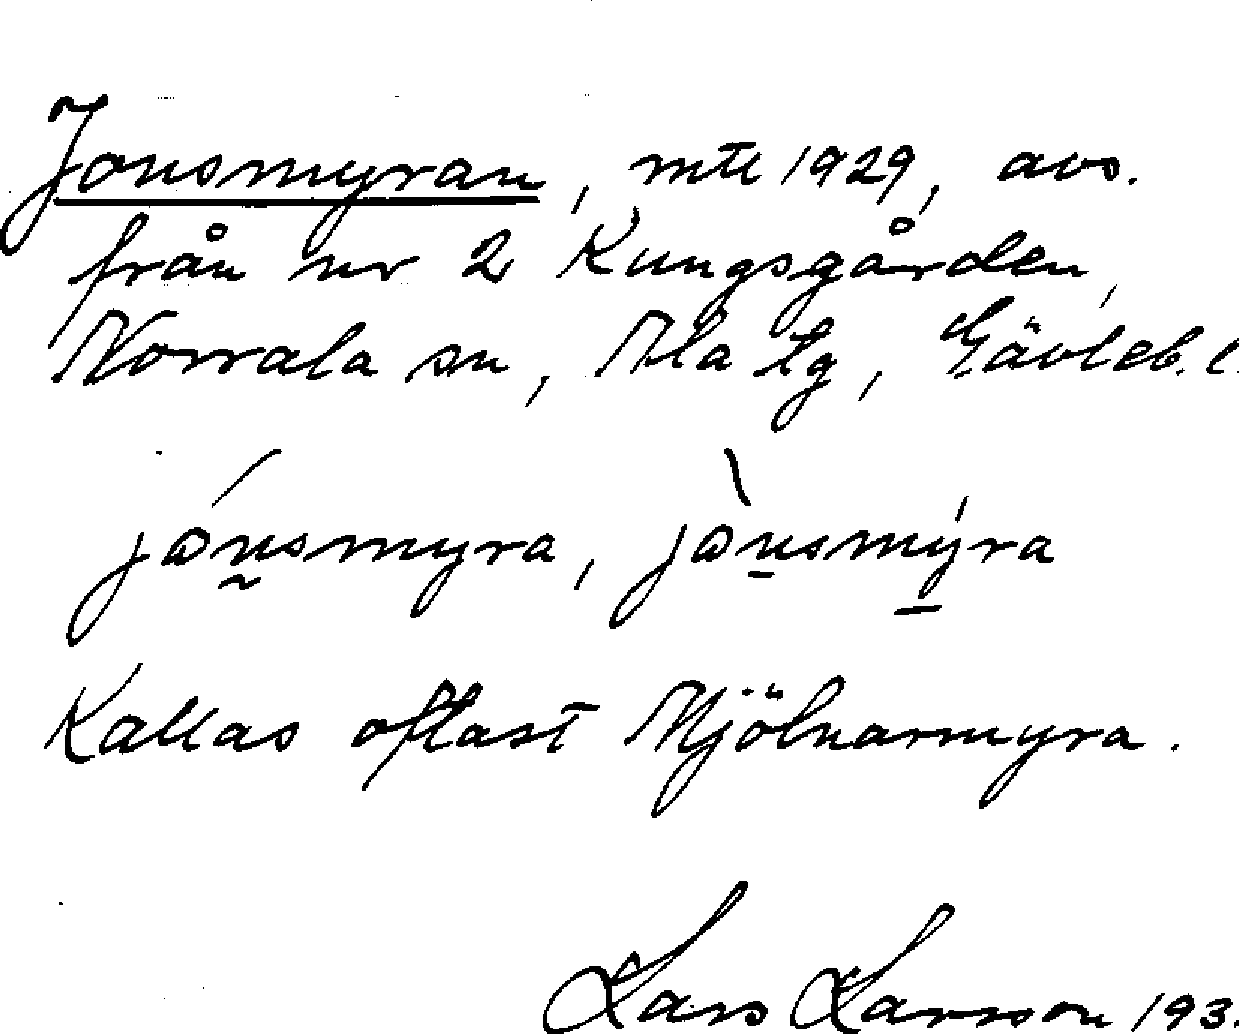 Jonsmyran, mtl 1929, avs.
från nr 2 Kungsgården,
Norrala sn, Ala tg, Gävleb. l.
jónsmyra, jònsmýra
Kallas oftast Mjölnarmyra.
Lars Larsson 193